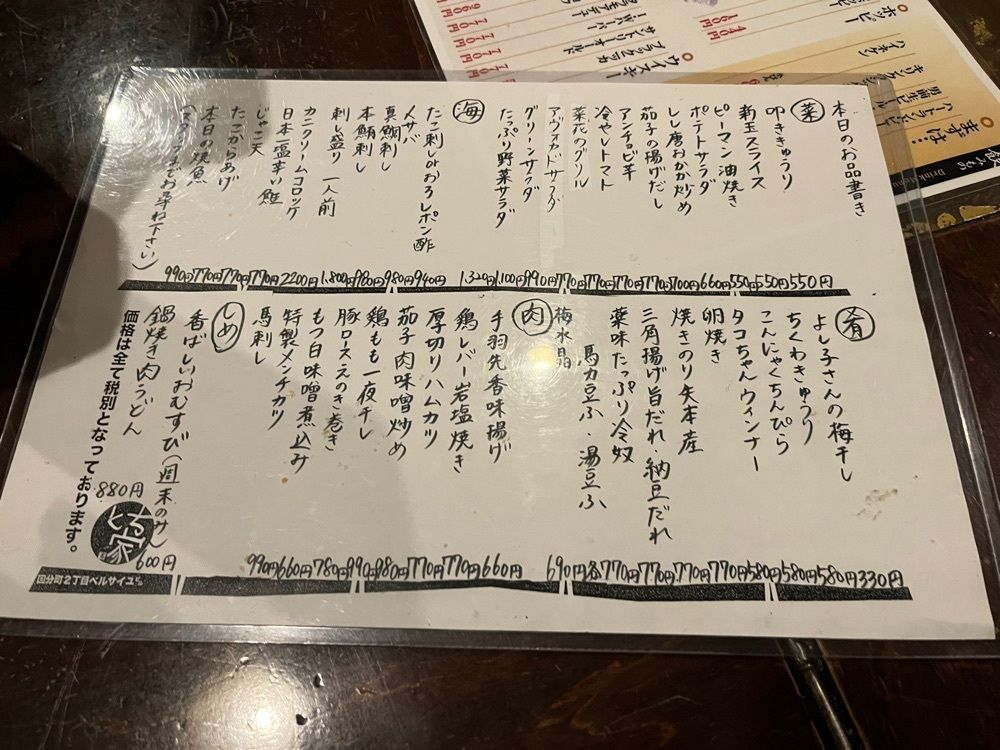 本日のお品書き
菜
叩ききゅうり
新玉スライス
ピーマン油焼き
ポテトサラダ
しし唐おかか炒め
茄子の揚げだし
アンチョビ芋
冷やしトマト
菜花のグリル
アボカドサラダ
グリーンサラダ
たっぷり野菜サラダ
海
たこ刺しorおろしポン酢
〆サバ
真鯛刺し
本鮪刺し
刺し盛り 一人前
カニクリームコロッケ
日本一塩辛い鮭
じゃこ天
たこからあげ
本日の焼魚
(スタッフまでお尋ね下さい)
990円770円770円770円2200円1,800円980円980円940円 1,320円1,100円990円770円770円770円770円700円660円550円550円550円
肴
よし子さんの梅干し
ちくわきゅうり
こんにゃくちんぴら
タコちゃんウィンナー
卵焼き
焼きのり矢本産
三角揚げ旨だれ・納豆だれ
薬味たっぷり冷奴
馬力豆ふ・湯豆ふ
梅水晶
肉
手羽先香味揚げ
鶏レバー岩塩焼き
厚切りハムカツ
茄子肉味噌炒め
鶏もも一夜干し
豚ロースえのき巻き
もつ味噌煮込み
特製メンチカツ
馬刺し
990円660円780円990円980円770円770円660円 690円各770円770円770円770円580円580円580円330円
しめ
香ばしいおむすび(週末のみ)
600円
鍋焼き肉うどん
880円
価格は全て税別となっております。
とる家
国分町2丁目ベルサイユ
飲みもの
Drink Menu
まずは…
ハイネケン
ホッピー
ウイスキー
ブラックニッカ
サントリーオールド
I.W.ハーパー